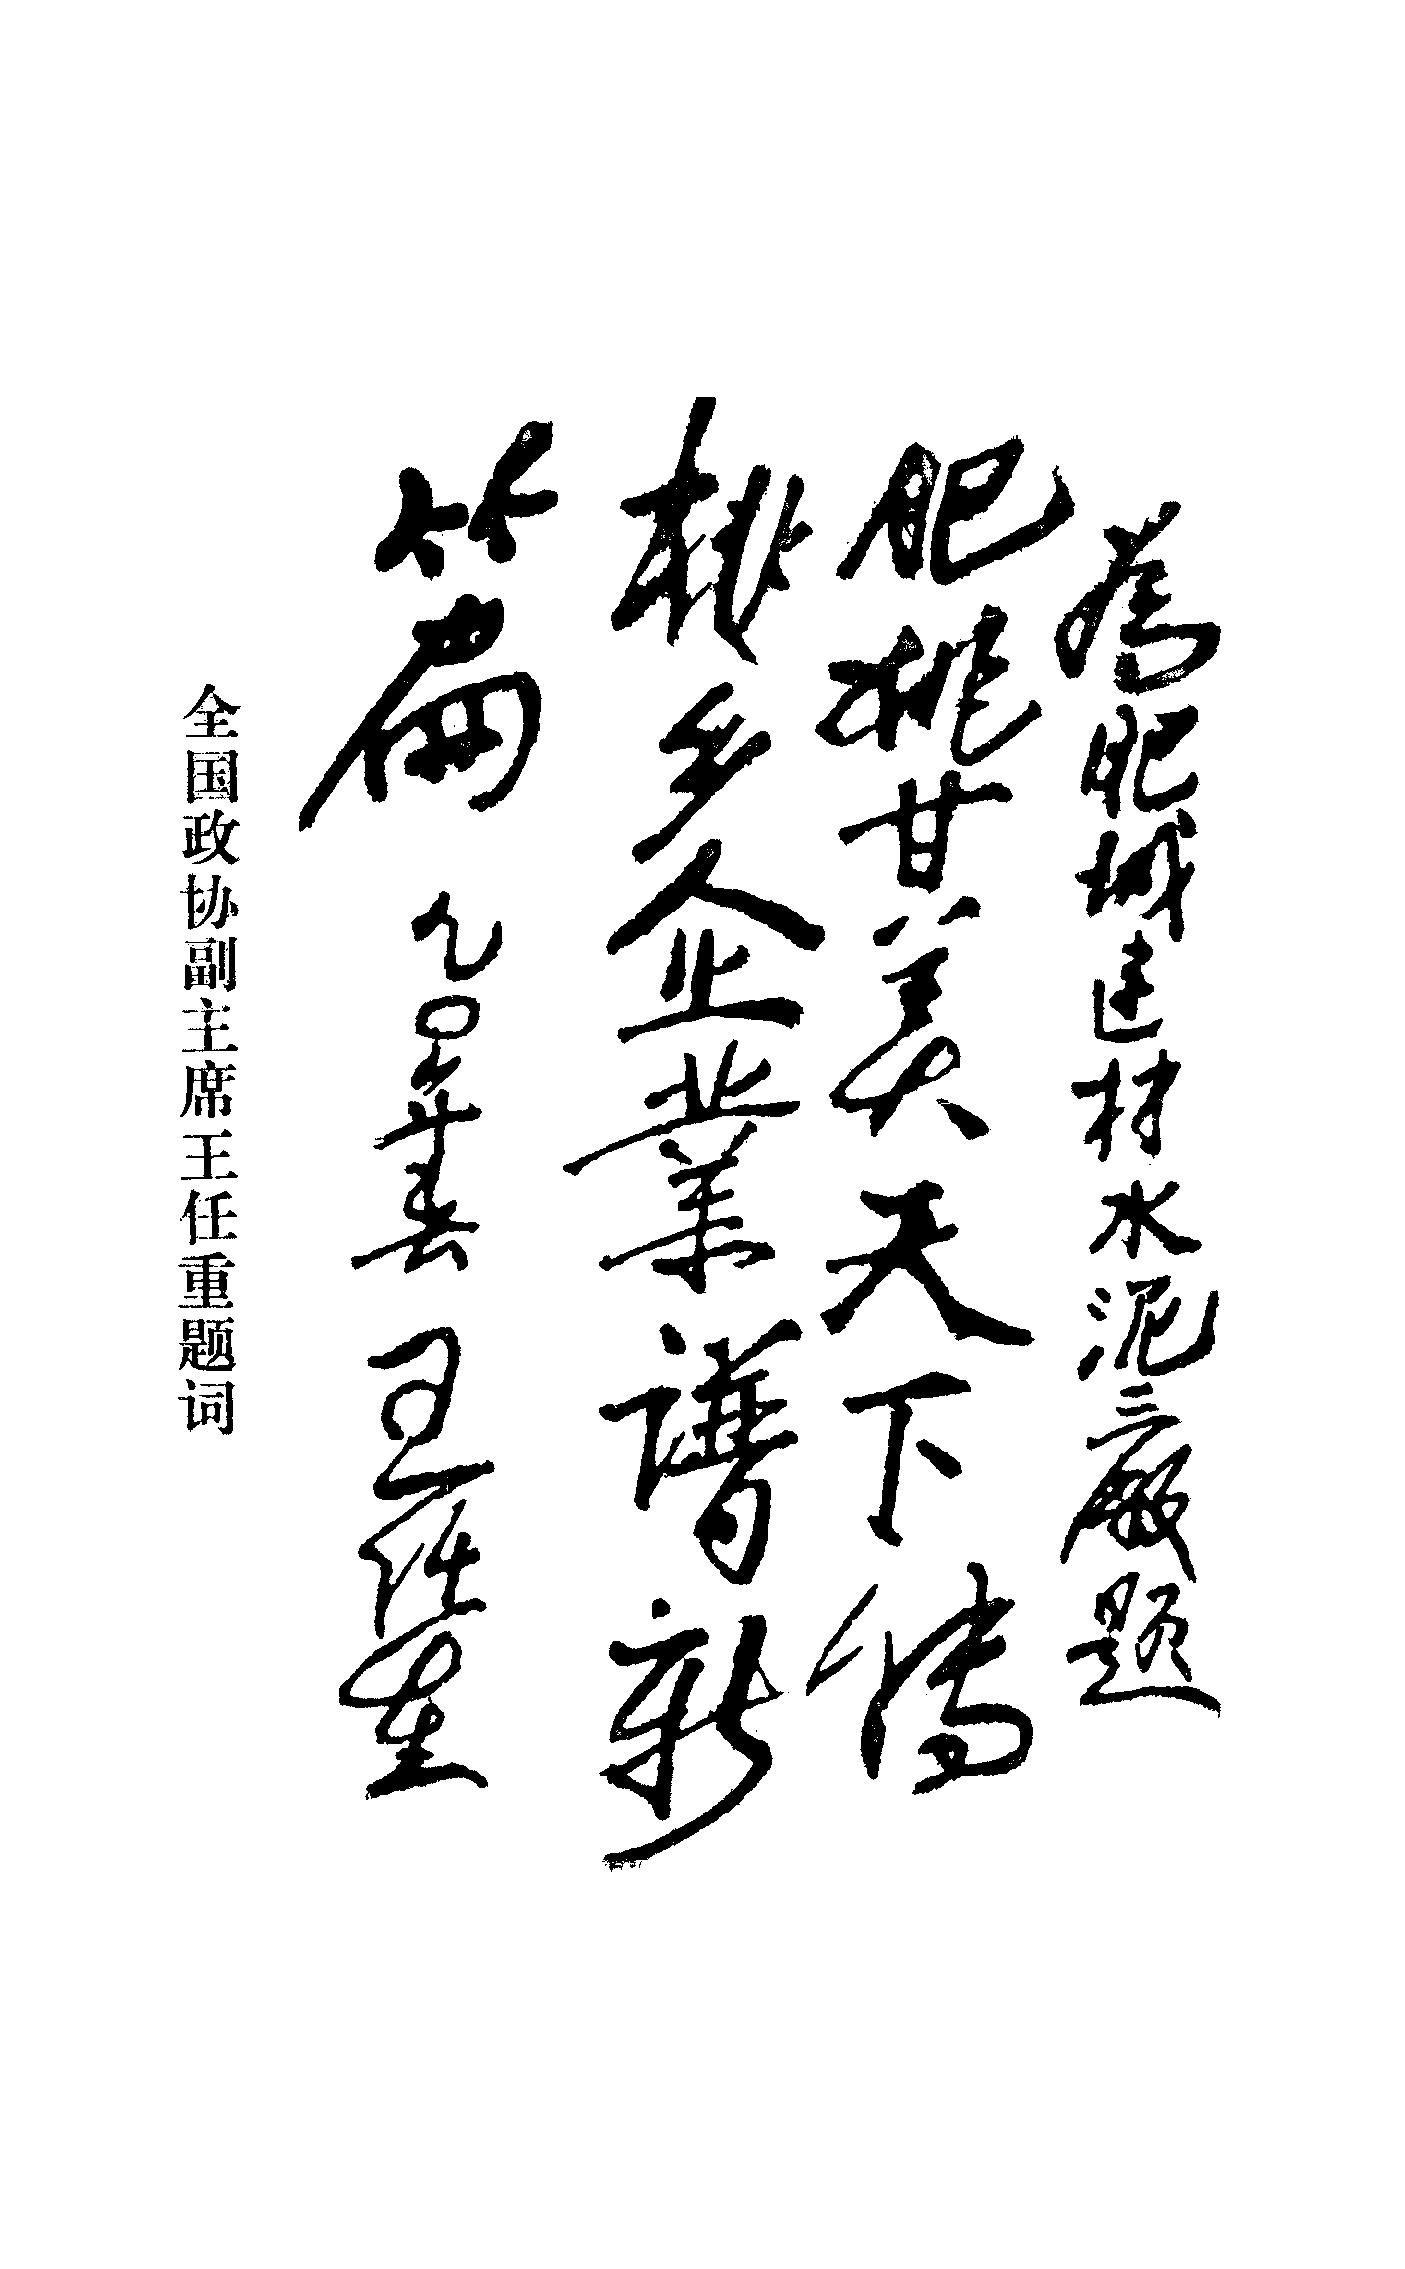 为肥城建材水泥三厰题
肥桃甘美天下传
桃乡企業谱新
篇 九〇年春 王任重
全国政协副主席王任重题词